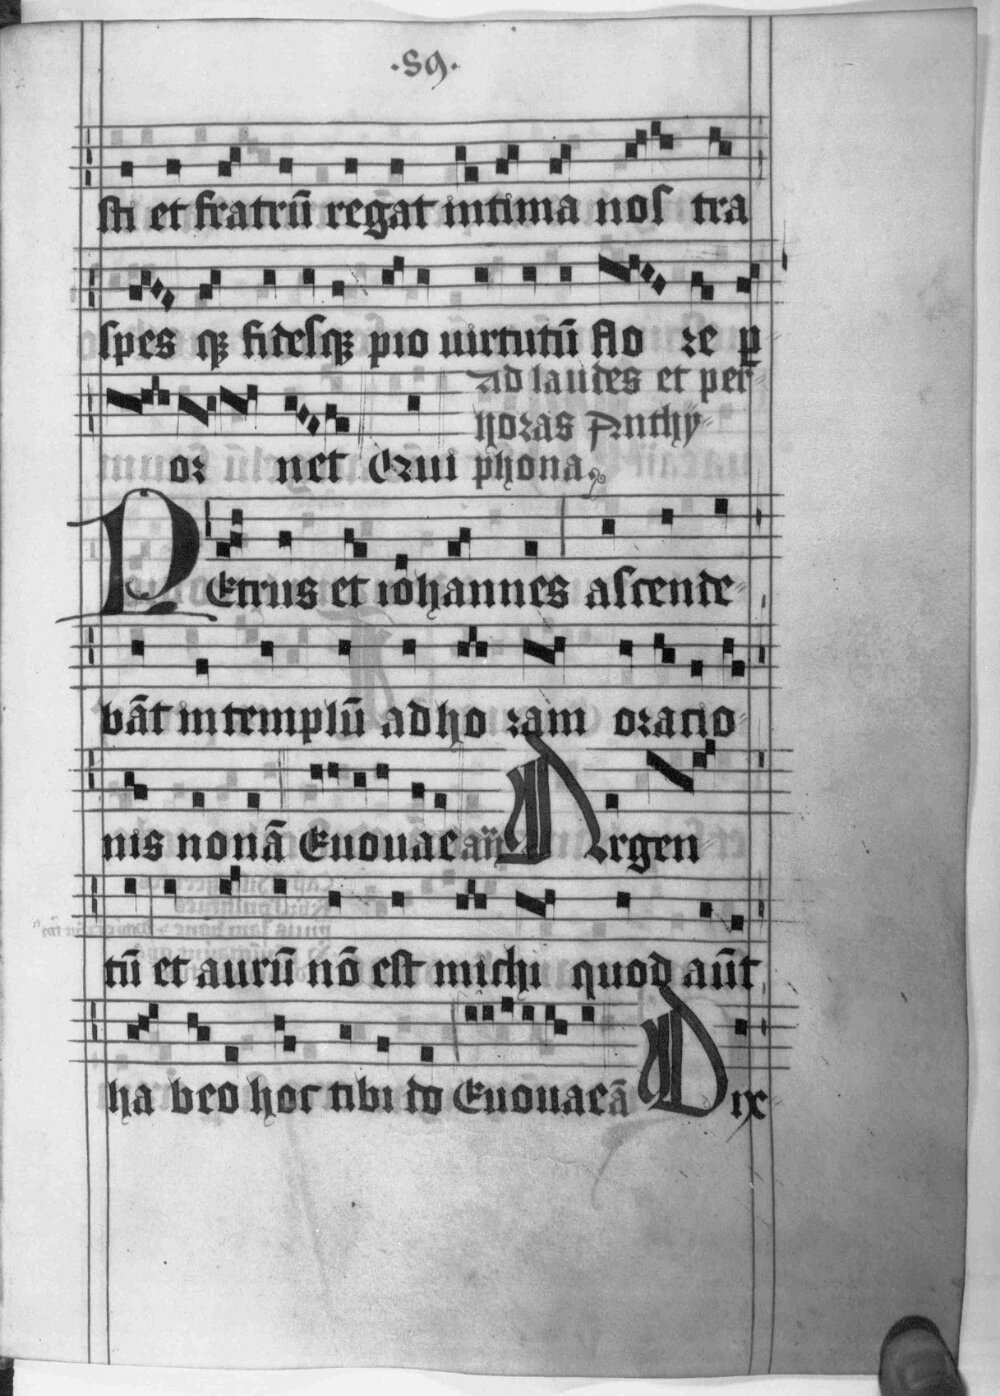 .59.
sti et fratrū regāt intima nos tra
spes qꝫ fidesqꝫ pio uirtutū flo re ꝑ
Ad laudes et per
horas Anthy-
or net Erui phona.
PEtrus et iohannes ascende-
bāt in templū ad ho ram oratio-
nis nonā Euouaeaī Argen-
tū et aurū nō est michi quod aūt
ha beo hoc tibi do Euouaeā Dix-